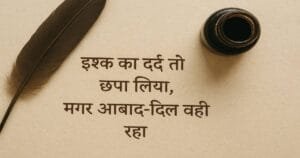 इश्क का दर्द तो
छपा लिया,
मगर आबाद-दिल वही
रहा